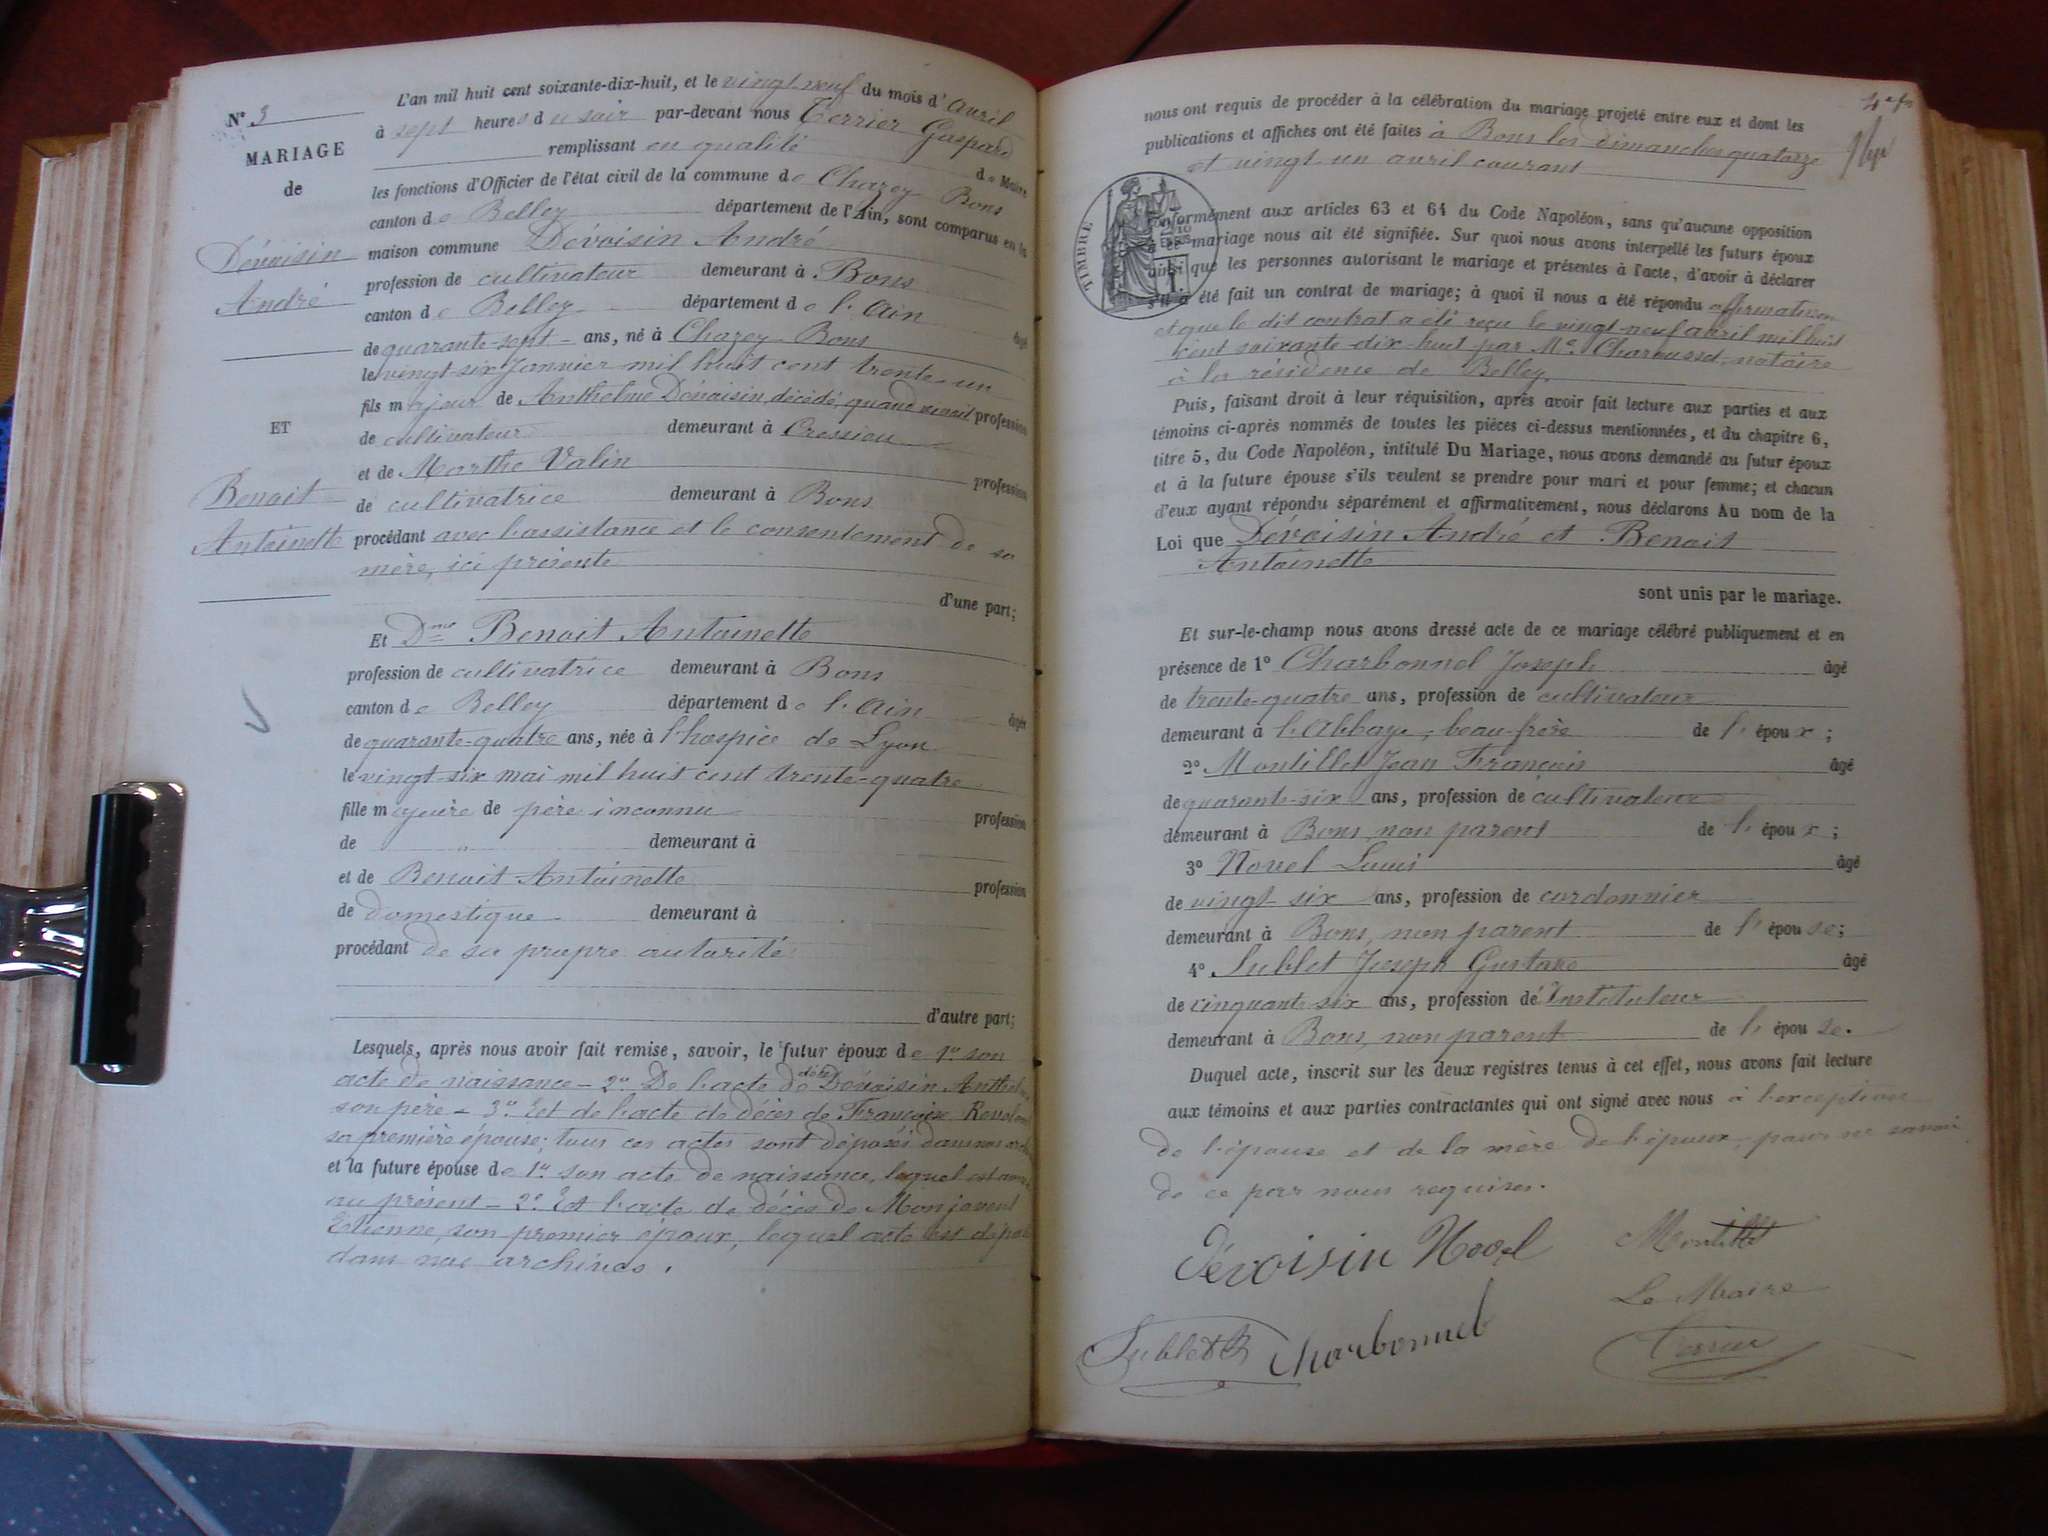 Nº 3
MARIAGE
de
Dévoisin
André
ET
Benoit
Antoinette
L'an mil huit cent soixante-dix-huit, et le vingt-neuf du mois d'avril
à sept heures du soir par-devant nous Terrier Gaspard
remplissant en qualité de Maire
les fonctions d'Officier de l'état civil de la commune de Chazey Bons
canton de Belley département de l'Ain, sont comparus en la
maison commune Dévoisin André
profession de cultivateur demeurant à Bons
canton de Belley département de l'Ain âgé
de quarante-sept ans, né à Chazey-Bons
le vingt-six Janvier mil huit cent trente-un
fils majeur de Anthelme Dévoisin, décédé, quand vivait profession
de cultivateur demeurant à Cressieu
et de Marthe Valin profession
de cultivatrice demeurant à Bons
procédant avec l'assistance et le consentement de sa
mère, ici présente
d'une part;
Et Dme Benoit Antoinette
profession de cultivatrice demeurant à Bons
canton de Belley département de l'Ain âgée
de quarante-quatre ans, née à l'hospice de Lyon
le vingt-six mai mil huit cent trente-quatre
fille majeure de père inconnu profession
de " demeurant à
et de Benoit Antoinette profession
de domestique demeurant à
procédant de sa propre autorité
d'autre part;
Lesquels, après nous avoir fait remise, savoir, le futur époux de 1º son
acte de naissance - 2º De l'acte de décès Dévoisin Anthelme
son père - 3º Et de l'acte de décès de Françoise
sa première épouse; tous ces actes sont déposés dans nos
et la future épouse de 1º son acte de naissance, lequel est
au présent - 2º Et l'acte de décès de Monjavent
Etienne, son premier époux, lequel acte est déposé
dans nos archives.
nous ont requis de procéder à la célébration du mariage projeté entre eux et dont les
publications et affiches ont été faites à Bons les dimanches quatorze
et vingt-un avril courant
TIMBRE
2/10 EN SUS
conformément aux articles 63 et 64 du Code Napoléon, sans qu'aucune opposition
à ce mariage nous ait été signifiée. Sur quoi nous avons interpellé les futurs époux
ainsi que les personnes autorisant le mariage et présentes à l'acte, d'avoir à déclarer
s'il a été fait un contrat de mariage; à quoi il nous a été répondu affirmativement
et que le dit contrat a été reçu le vingt-neuf avril mil huit
cent soixante-dix-huit par Me Charousset, notaire
à la résidence de Belley.
Puis, faisant droit à leur réquisition, après avoir fait lecture aux parties et aux
témoins ci-après nommés de toutes les pièces ci-dessus mentionnées, et du chapitre 6,
titre 5, du Code Napoléon, intitulé Du Mariage, nous avons demandé au futur époux
et à la future épouse s'ils veulent se prendre pour mari et pour femme; et chacun
d'eux ayant répondu séparément et affirmativement, nous déclarons Au nom de la
Loi que Dévoisin André et Benoit
Antoinette
sont unis par le mariage.
Et sur-le-champ nous avons dressé acte de ce mariage célébré publiquement et en
présence de 1º Charbonnel Joseph âgé
de trente-quatre ans, profession de cultivateur
demeurant à l'Abbaye, beau-frère de l'époux;
2º Montillet Jean François âgé
de quarante-six ans, profession de cultivateur
demeurant à Bons, non parent de l'époux;
3º Novel Louis âgé
de vingt six ans, profession de cordonnier
demeurant à Bons, non parent de l'épouse;
4º Sublet Joseph Gustave âgé
de cinquante-six ans, profession de Instituteur
demeurant à Bons, non parent de l'épouse.
Duquel acte, inscrit sur les deux registres tenus à cet effet, nous avons fait lecture
aux témoins et aux parties contractantes qui ont signé avec nous à l'exception
de l'épouse et de la mère de l'époux, pour ne savoir
de ce par nous requises.
Dévoisin Novel Montillet
Le Maire
Sublet Charbonnel Terrier